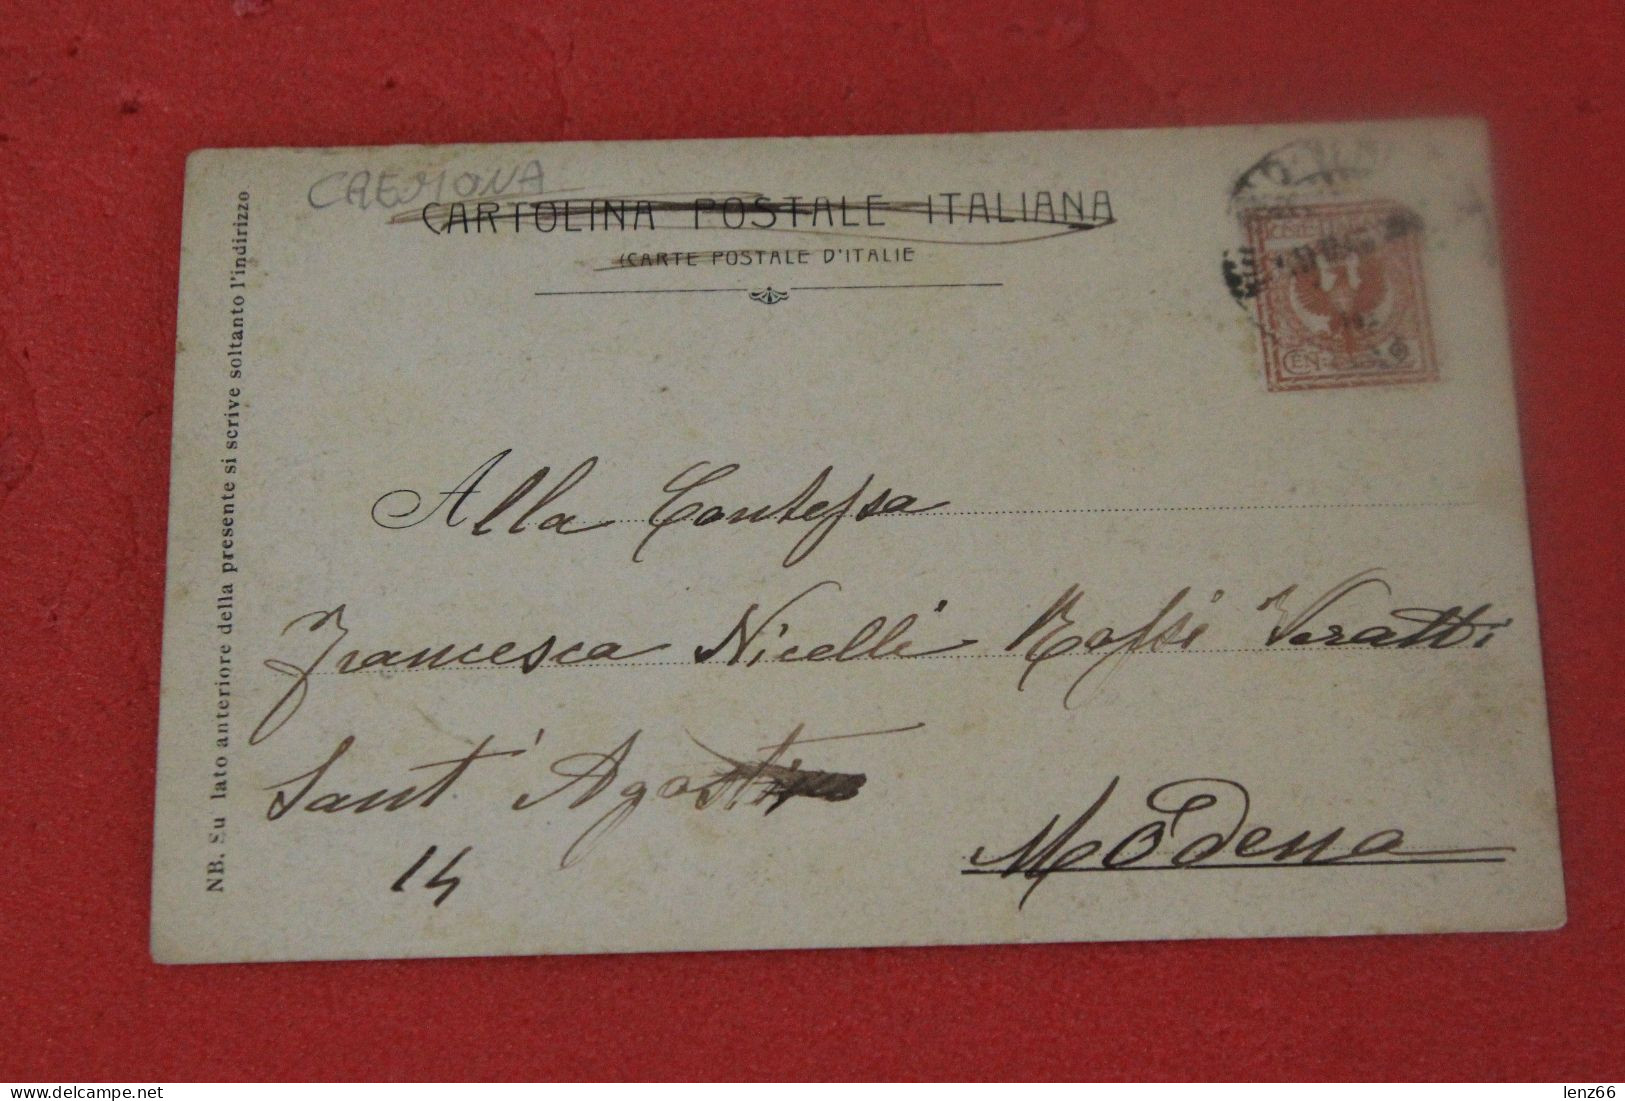 CREMONA
CARTOLINA POSTALE ITALIANA
(CARTE POSTALE D'ITALIE
NB. Su lato anteriore della presente si scrive soltanto l'indirizzo
Alla Contessa
Francesca Nicelli Rossi Veratti
Sant' Agostino
14
Modena
lenz66